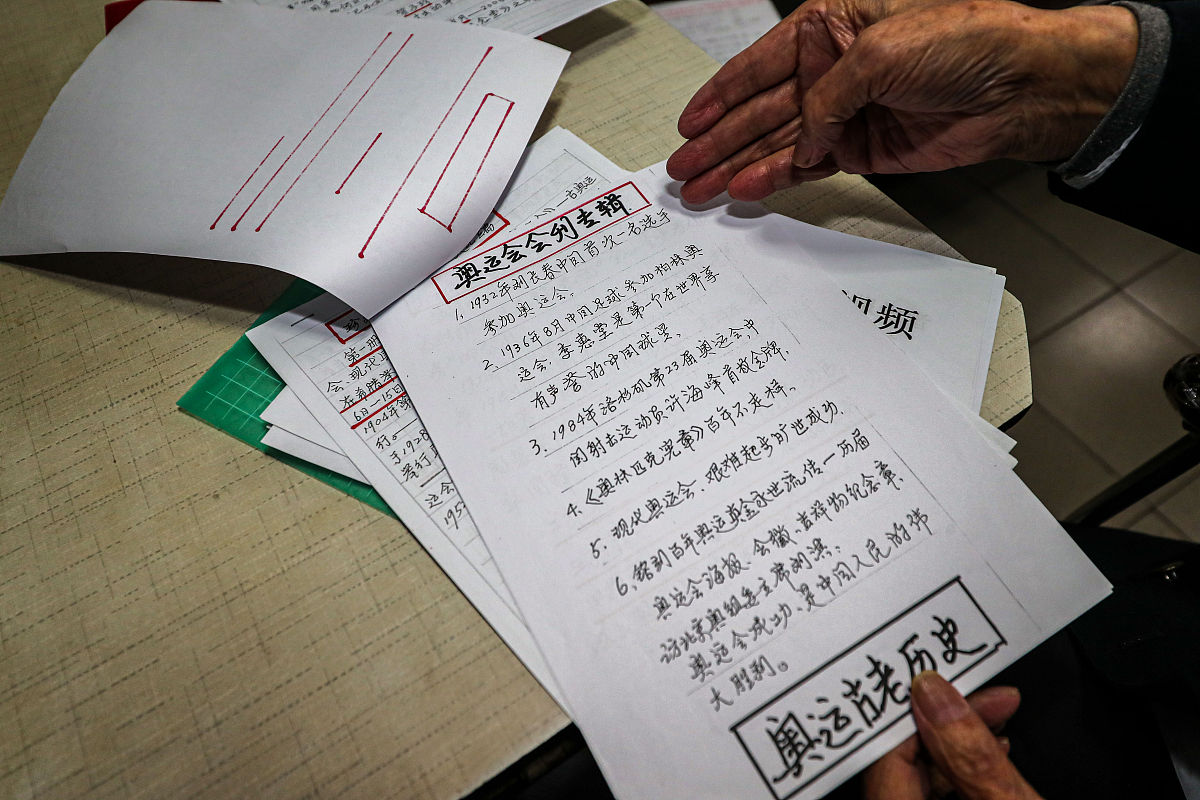 古奥运
奥运会会刊专辑
1. 1932年刘长春中国首次一名选手
参加奥运会。
2. 1936年8月中国足球参加柏林奥
运会.李惠堂是第2个在世界享
有声誉的中国球星。
3. 1984年洛杉矶第23届奥运会,中
国射击运动员许海峰首枚金牌.
4.《奥林匹克宪章》百年不走样。
5. 现代奥运会.艰难起步旷世成功.
6. 铭刻百年奥运 永世流传一历届
奥运会海报、会徽、吉祥物纪念章.
访北京奥组委主席刘淇:
奥运会成功、是中国人民的伟
大胜利。
奥运古老历史
视频
珍
第一册
会.现代
在希腊
6日—15日
1904年第
行。
于1928
举行
运会
195